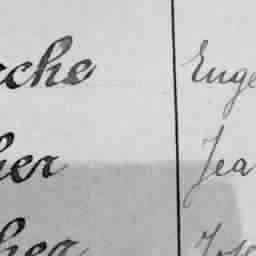 che Euge
her Jea
her Jose